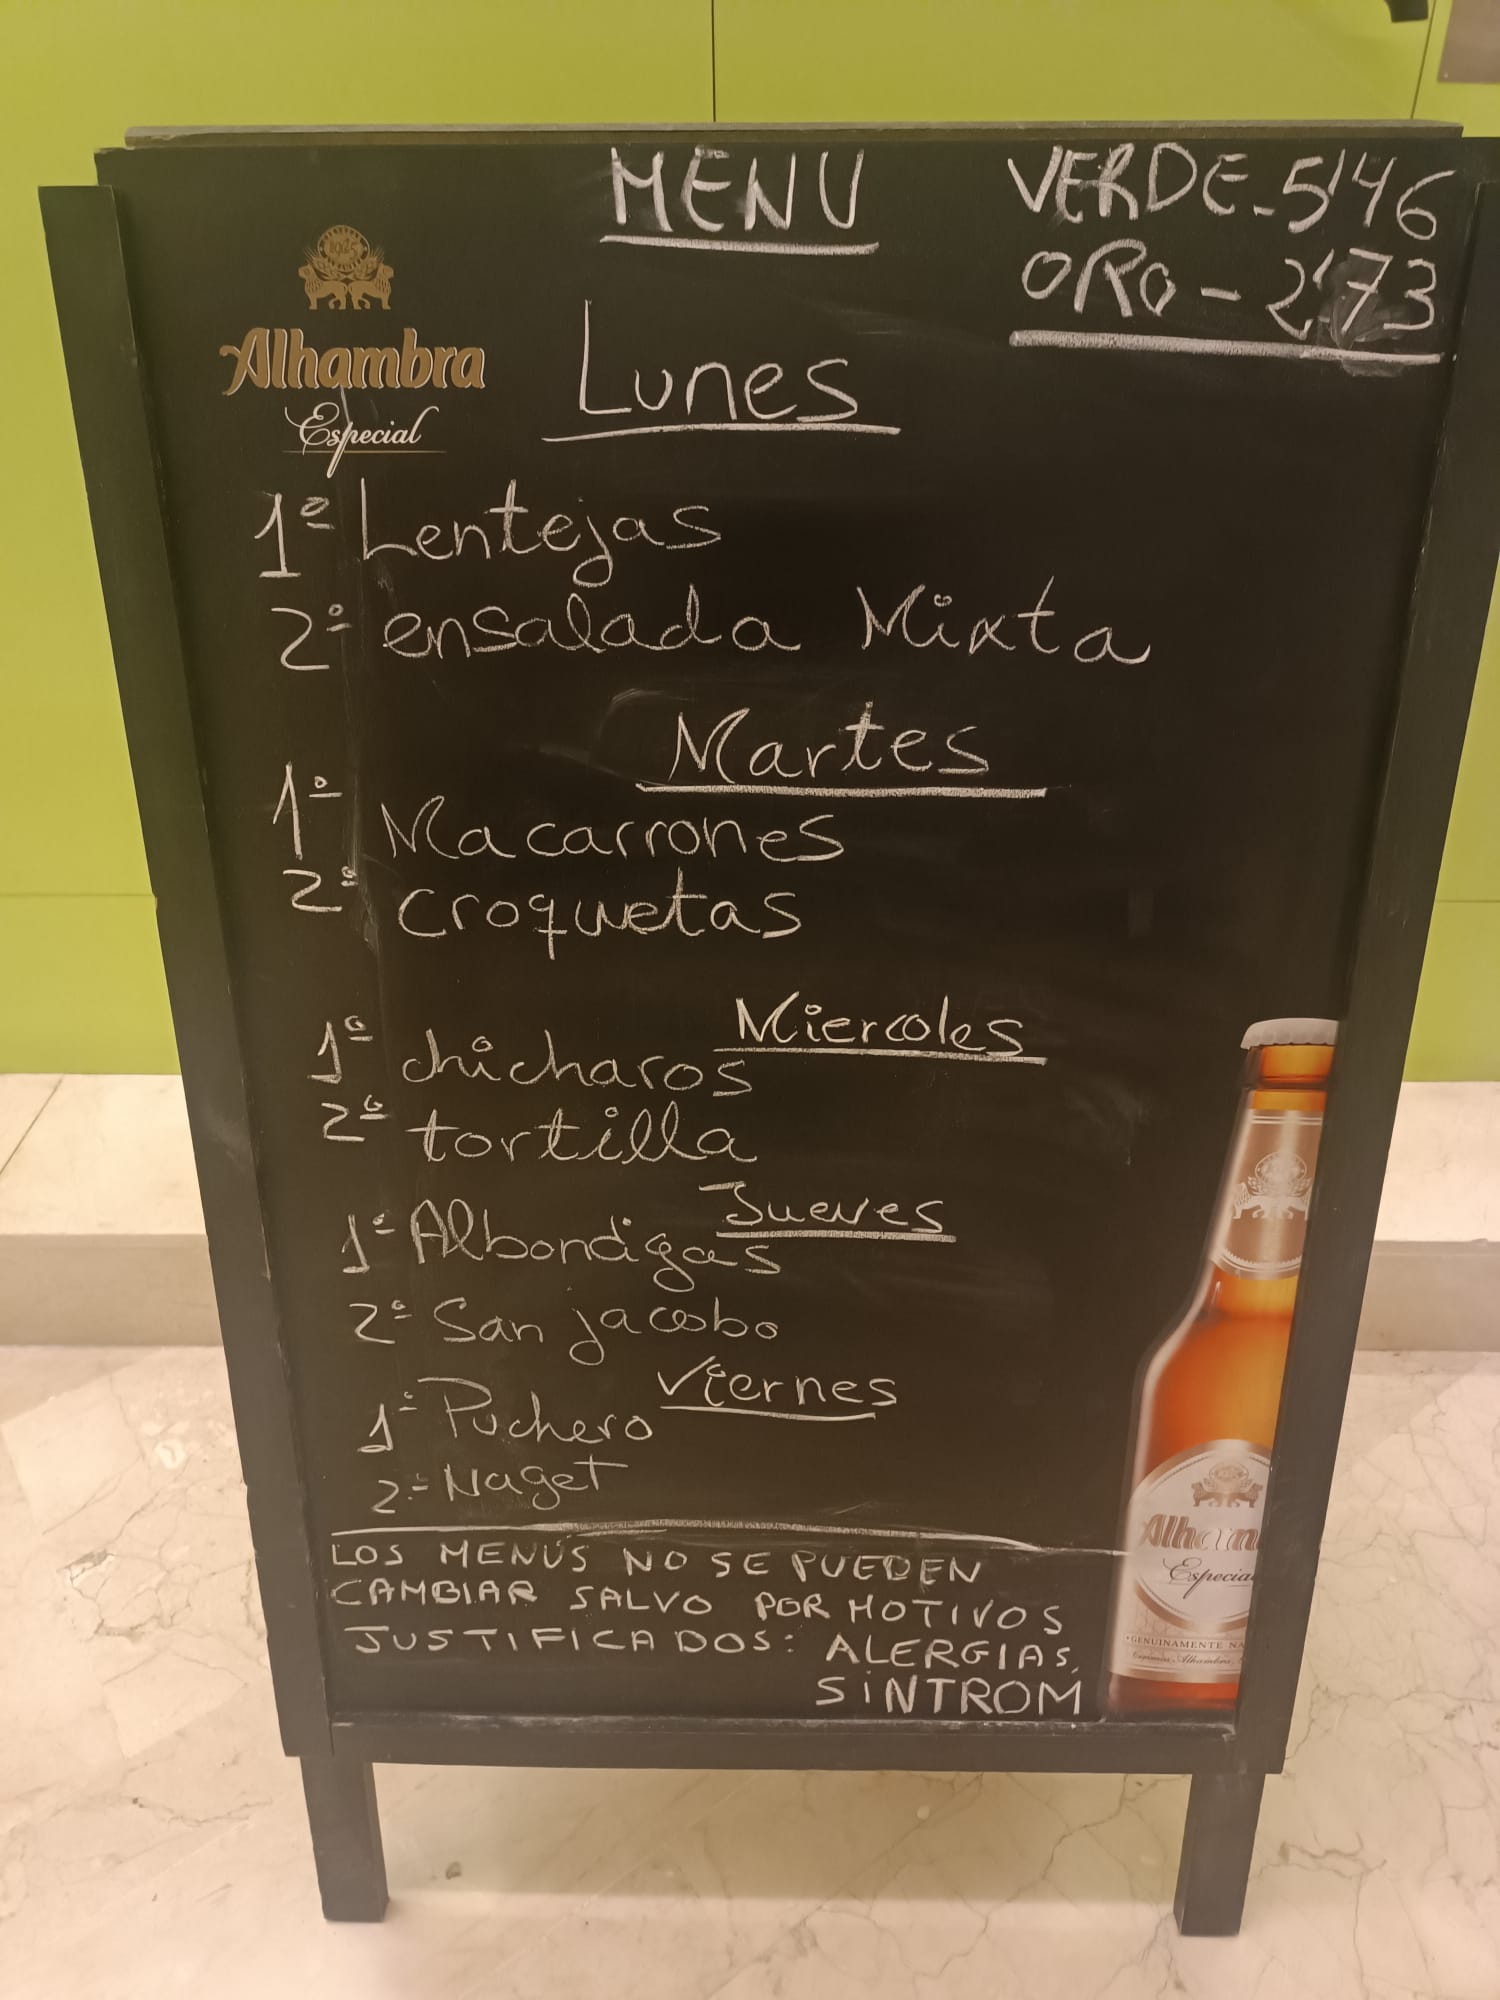 MENU
VERDE-5'46
ORO-2'73
1925
Alhambra
Especial
Lunes
1º Lentejas
2º ensalada Mixta
Martes
1º Macarrones
2º croquetas
Miercoles
1º chicharos
2º tortilla
Jueves
1º Albondigas
2º San jacobo
Viernes
1º Puchero
2º Naget
LOS MENÚS NO SE PUEDEN
CAMBIAR SALVO POR MOTIVOS
JUSTIFICADOS: ALERGIAS,
SINTROM
Alham
Especial
GENUINAMENTE NA
Cervezas Alhambra,